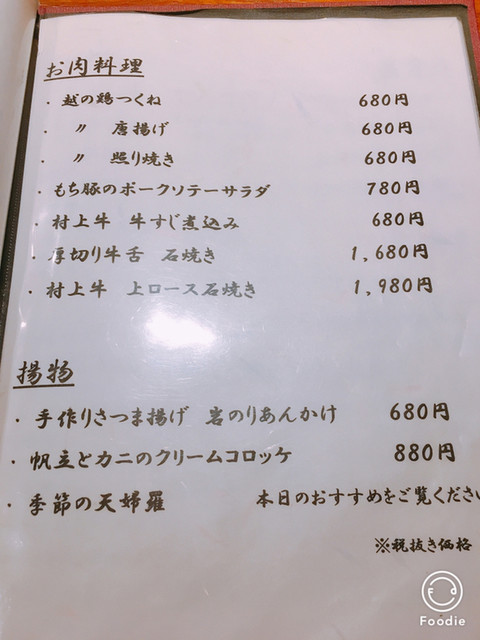 お肉料理
・越の鶏つくね 680円
・ 〃 唐揚げ 680円
・ 〃 照り焼き 680円
・もち豚のポークソテーサラダ 780円
・村上牛 牛すじ煮込み 680円
・厚切り牛舌 石焼き 1,680円
・村上牛 上ロース石焼き 1,980円
揚物
・手作りさつま揚げ 岩のりあんかけ 680円
・帆立とカニのクリームコロッケ 880円
・季節の天婦羅 本日のおすすめをご覧くださ
※税抜き価格
Foodie